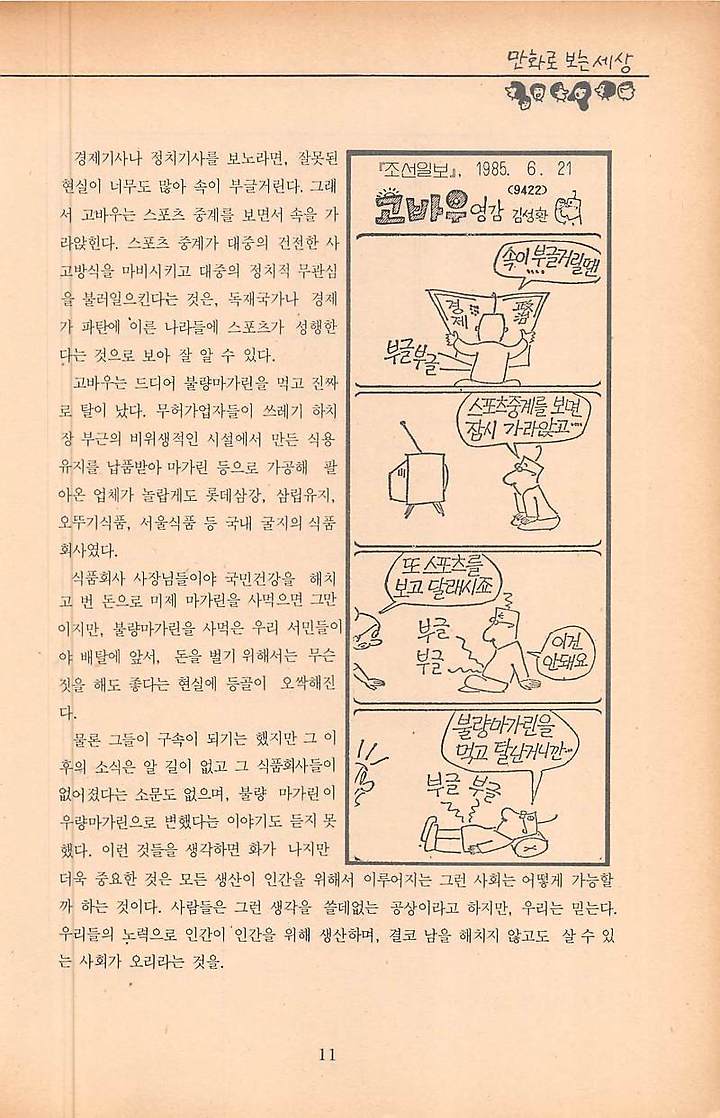 만화로 보는 세상
경제기사나 정치기사를 보노라면, 잘못된
현실이 너무도 많아 속이 부글거린다. 그래
서 고바우는 스포츠 중계를 보면서 속을 가
라앉힌다. 스포츠 중계가 대중의 건전한 사
고방식을 마비시키고 대중의 정치적 무관심
을 불러일으킨다는 것은, 독재국가나 경제
가 파탄에 이른 나라들에 스포츠가 성행한
다는 것으로 보아 잘 알 수 있다.
고바우는 드디어 불량마가린을 먹고 진짜
로 탈이 났다. 무허가업자들이 쓰레기 하치
장 부근의 비위생적인 시설에서 만든 식용
유지를 납품받아 마가린 등으로 가공해 팔
아온 업체가 놀랍게도 롯데삼강, 삼립유지,
오뚜기식품, 서울식품 등 국내 굴지의 식품
회사였다.
식품회사 사장님들이야 국민건강을 해치
고 번 돈으로 미제 마가린을 사먹으면 그만
이지만, 불량마가린을 사먹은 우리 서민들이
야 배탈에 앞서, 돈을 벌기 위해서는 무슨
짓을 해도 좋다는 현실에 등골이 오싹해진
다.
물론 그들이 구속이 되기는 했지만 그 이
후의 소식은 알 길이 없고 그 식품회사들이
없어졌다는 소문도 없으며, 불량 마가린이
우량마가린으로 변했다는 이야기도 듣지 못
했다. 이런 것들을 생각하면 화가 나지만
더욱 중요한 것은 모든 생산이 인간을 위해서 이루어지는 그런 사회는 어떻게 가능할
까 하는 것이다. 사람들은 그런 생각을 쓸데없는 공상이라고 하지만, 우리는 믿는다.
우리들의 노력으로 인간이 인간을 위해 생산하며, 결코 남을 해치지 않고도 살 수 있
는 사회가 오리라는 것을.
『조선일보』, 1985. 6. 21
<9422>
고바우 영감 김성환
속이 부글거릴땐
....
경제
政治
부글부글
스포츠중계를 보면
잠시 가라앉고....
또 스포츠를
보고 달래시죠
부글
부글
이건
안돼요
불량마가린을
먹고 탈난거니깐...
부글 부글
11